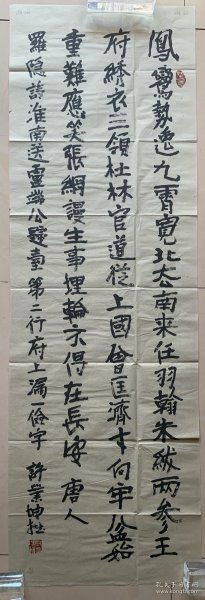 鳳鸞勢逸九霄寬北去南来任羽翰朱紱兩參王
府綉衣三領杜林官道從上國曾匡濟才向牢盆始
重難應笑張綱謾生事埋輪不得在長安 唐人
羅隱詩淮南送盧端公歸臺 第二行府上漏一儉字 許業坤